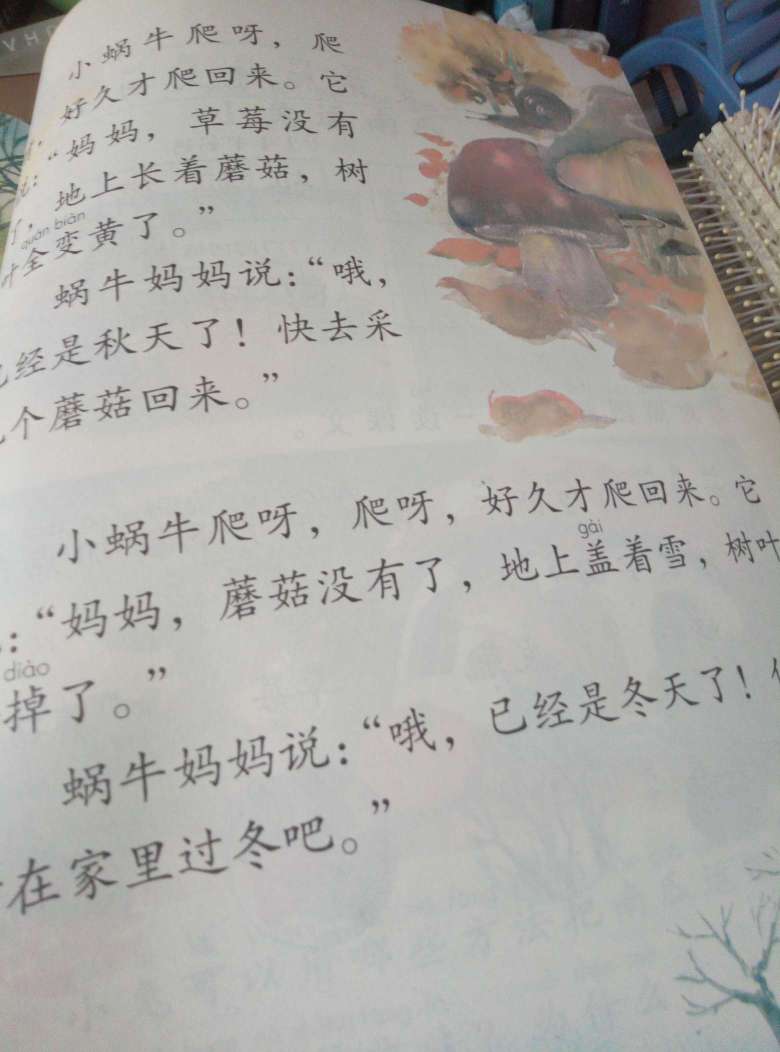 小蜗牛爬呀，爬
好久才爬回来。它
：“妈妈，草莓没有
了，地上长着蘑菇，树
quán biàn
叶全变黄了。”
蜗牛妈妈说：“哦，
已经是秋天了！快去采
个蘑菇回来。”
小蜗牛爬呀，爬呀，好久才爬回来。它
gài
：“妈妈，蘑菇没有了，地上盖着雪，树叶
diào
掉了。”
蜗牛妈妈说：“哦，已经是冬天了！
在家里过冬吧。”